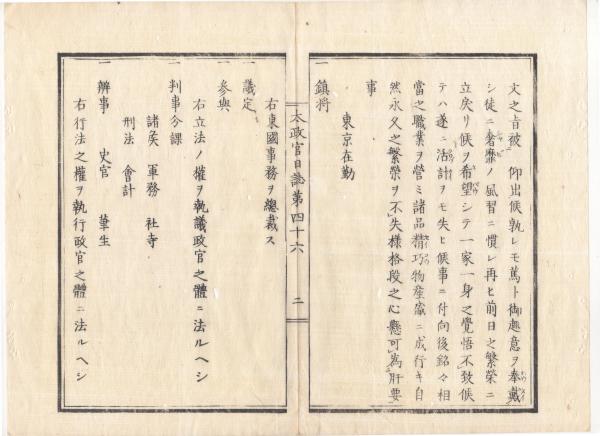 文之旨被　仰出候孰レモ篤ト御趣意ヲ奉戴
シ徒ニ奢靡ノ風習ニ慣レ再ヒ前日之繁榮ニ
立戻リ候ヲ希望シテ一家一身之覺悟不致候
テハ遂ニ活計ヲモ失ヒ候事ニ付向後銘々相
當之職業ヲ營ミ諸品精巧物産盛ニ成行キ自
然永久之繁榮ヲ不失様格段之心懸可爲肝要
事
東京在勤
一 鎮將
右東國事務ヲ總裁ス
太政官日誌第四十六　二
一 議定
參與
右立法ノ權ヲ執議政官之體ニ法ルヘシ
一 判事分課
諸矦　軍務　社寺
刑法　會計
一 辨事　史官　筆生
右行法之權ヲ執行政官之體ニ法ルヘシ